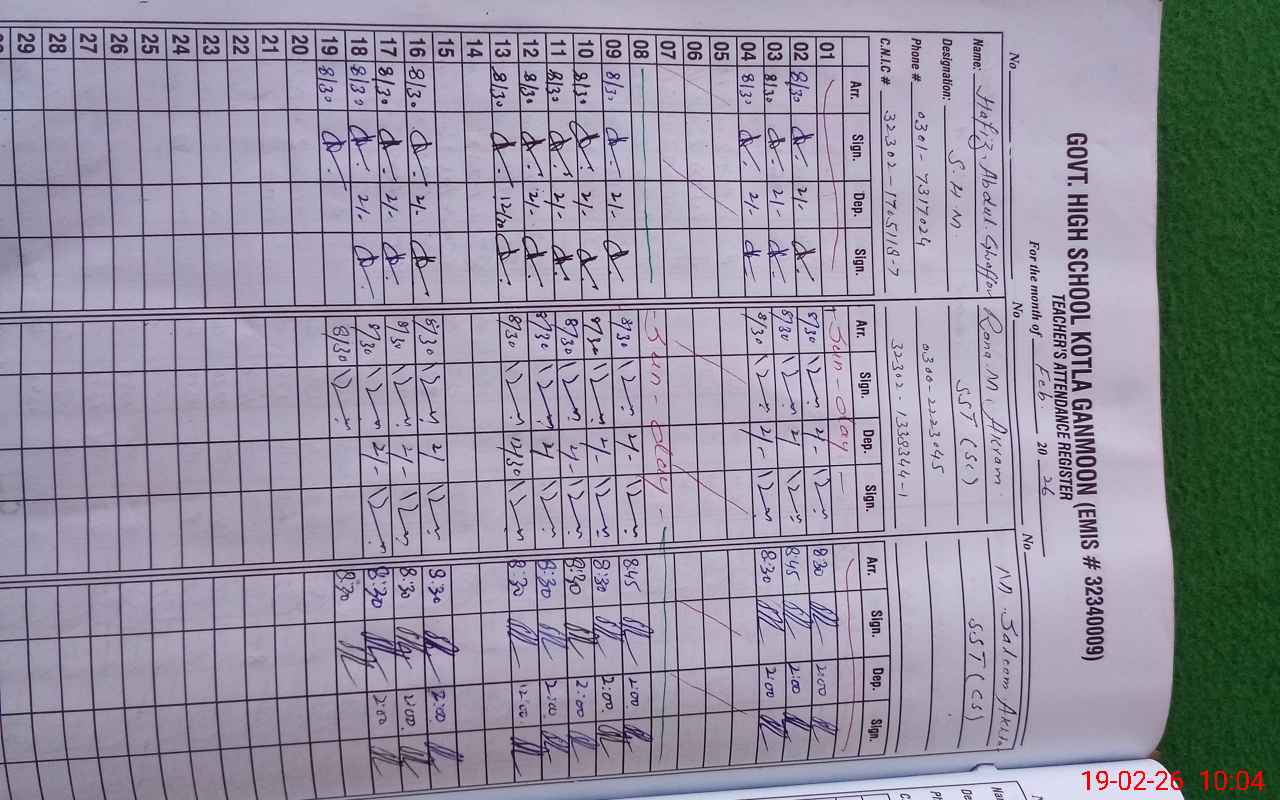 GOVT. HIGH SCHOOL KOTLA GANMOON (EMIS # 32340009)
TEACHER'S ATTENDANCE REGISTER
For the month of Feb. 20 26
No. No. No.
Name: Hafiz. Abdul. Ghaffor Rana. M. Akram. M. Saleem
Designation: S. H M. SST (Sc) SST (CS)
Phone # 0301-7317024 0300-2223045
C.N.I.C # 32302-1705118-7 32302-1338344-1
Arr. Sign. Dep. Sign. Arr. Sign. Dep. Sign. Arr. Sign. Dep. Sign.
01 Sun-day
02 8/30 2/- 8/30 2/- 8:30 2:00
03 8/30 2/- 8/30 2/ 8:45 2:00
04 8/30 2/- 8/30 2/- 8:30 2:00
05
06
07
08 Sun-day
09 8/30 2/- 8/30 2/- 8:45 2:00
10 8/30 2/- 8/30 2/- 8:30 2:00
11 8/30 2/- 8/30 2/- 8:30 2:00
12 8/30 2/- 8/30 2/ 8:30 2:00
13 8/30 12/30 8/30 12/30 8:30 12:00
14
15
16 8/30 2/- 8/30 2/ 8:30 2:00
17 8/30 2/- 8/30 2/- 8:30 2:00
18 8/30 2/- 8/30 2/- 8:30 2:00
19 8/30 8/30 8:30
20
21
22
23
24
25
26
27
28
29
19-02-26 10:04